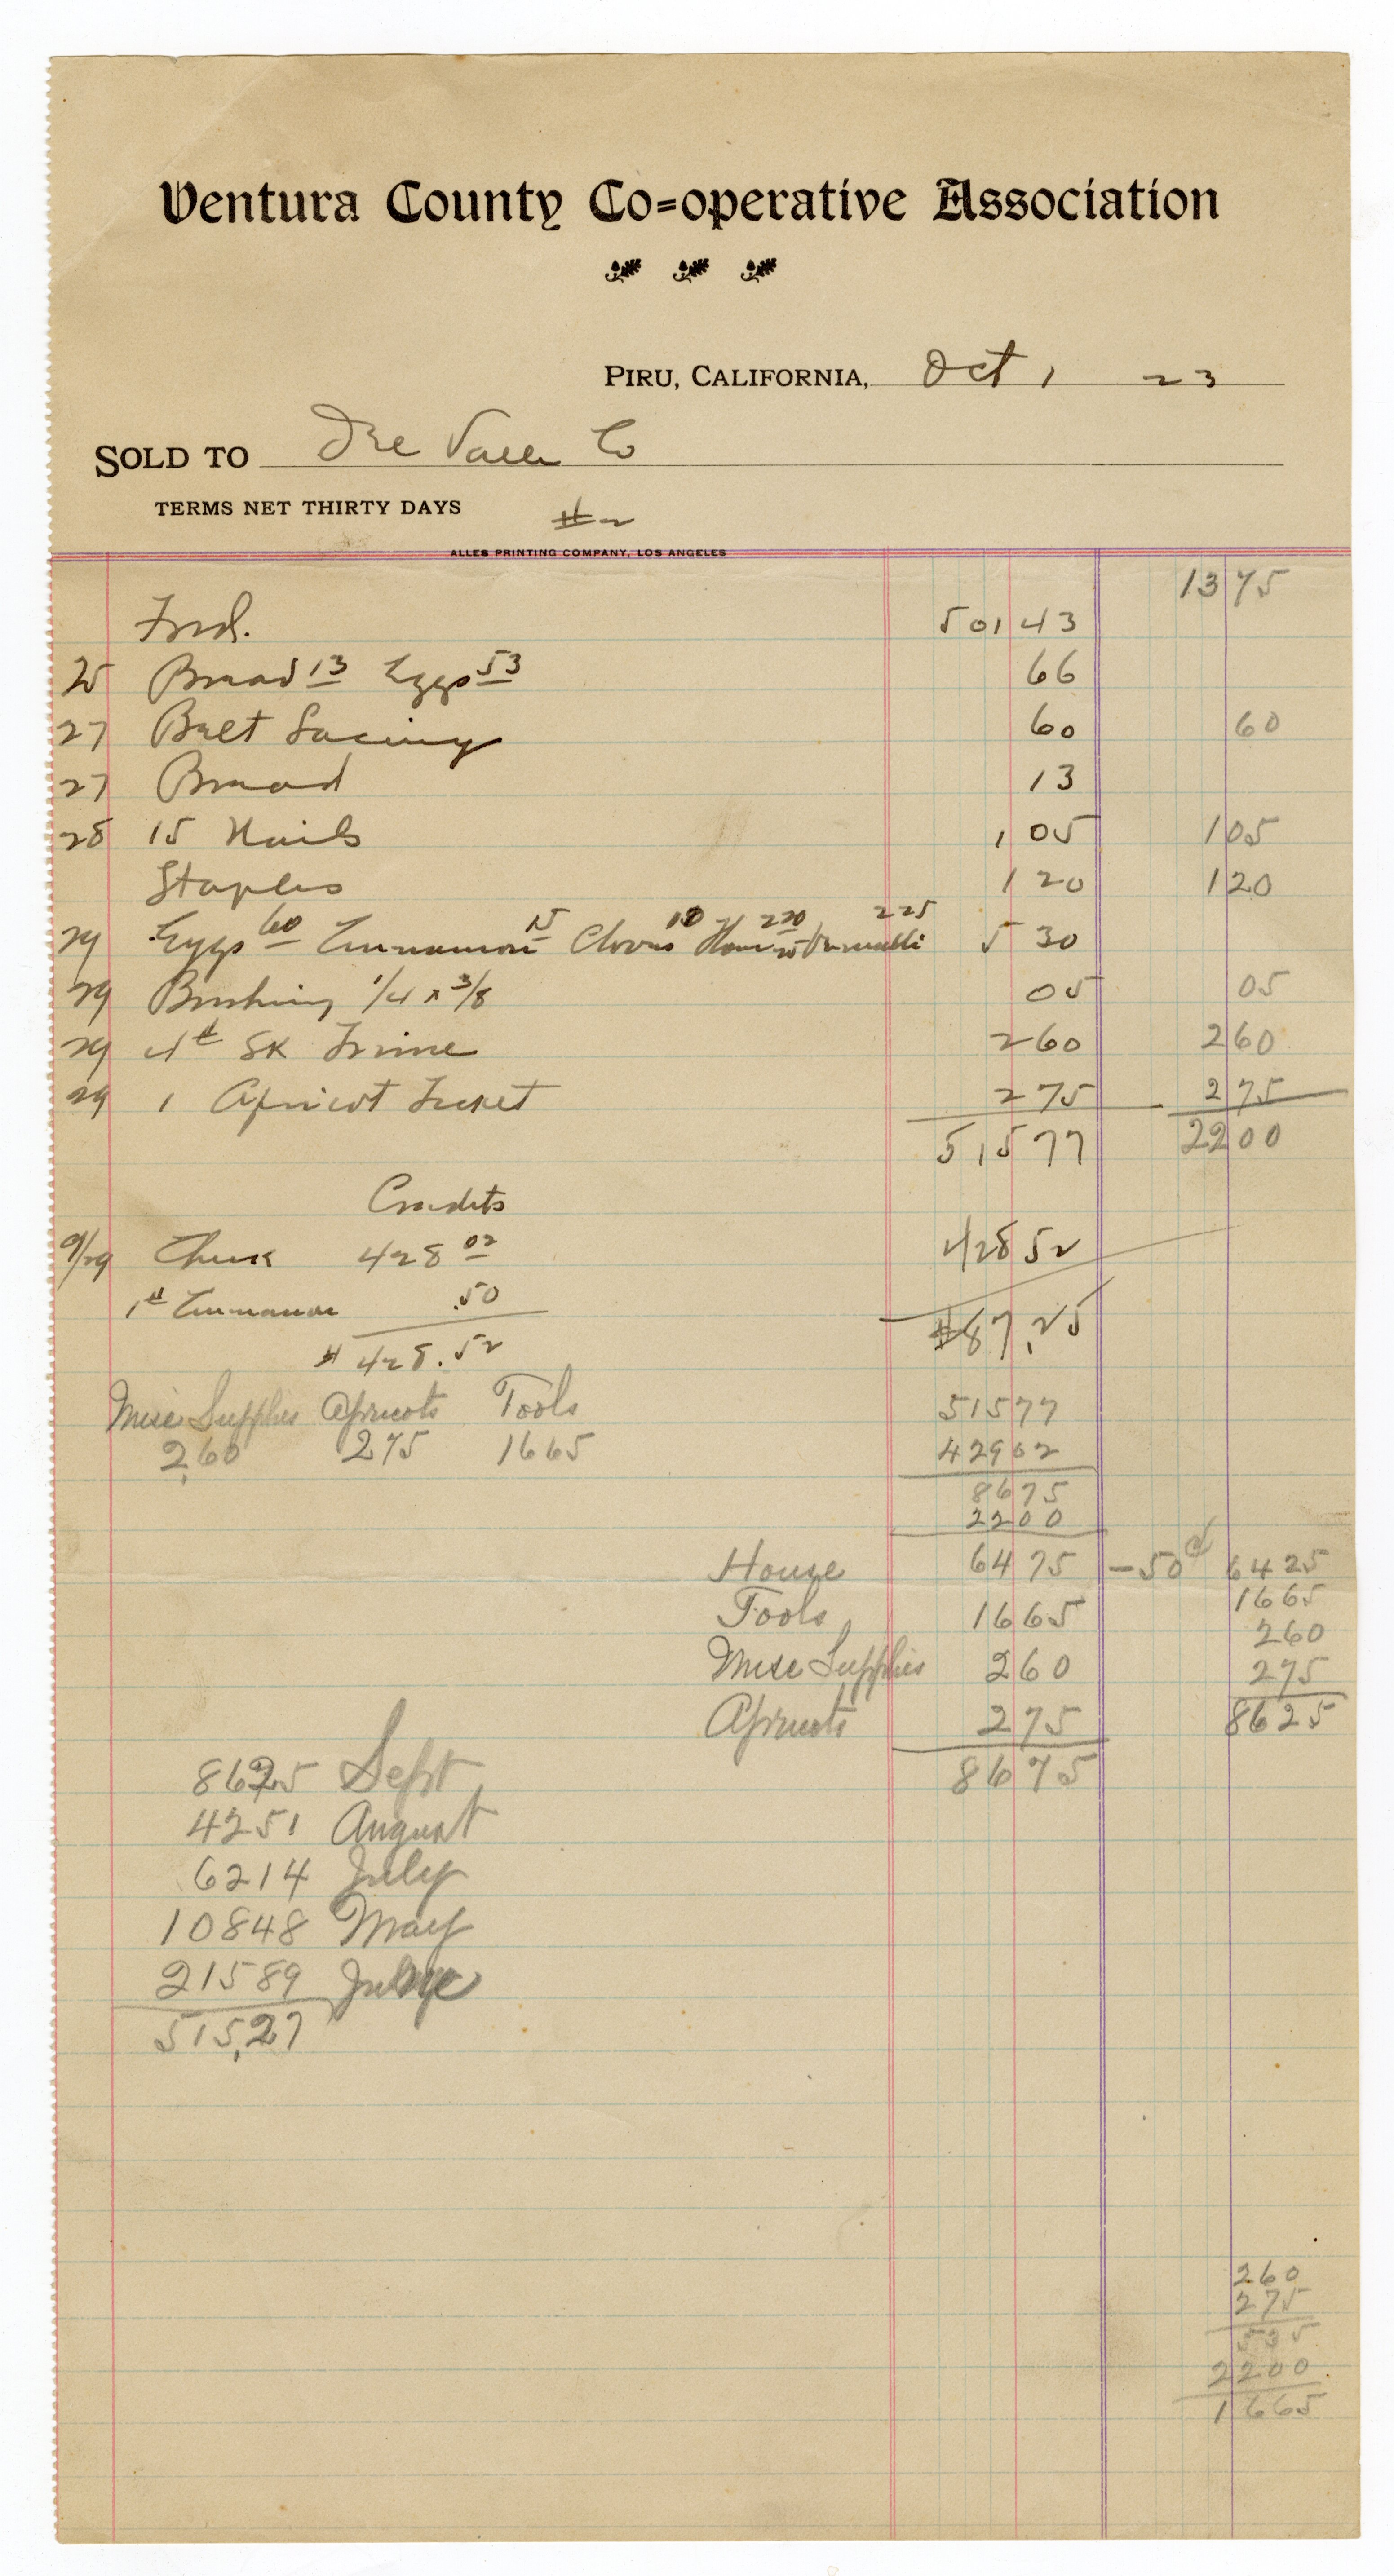 Ventura County Co=operative Association
PIRU, CALIFORNIA, Oct 1 23
SOLD TO Del Valle Co
TERMS NET THIRTY DAYS #2
ALLES PRINTING COMPANY, LOS ANGELES
13 75
Fwd. 501 43
25 Bread 13 Eggs 53 66
27 Belt Lacing 60 60
27 Bread 13
28 15 Nails 1 05 1 05
Staples 1 20 1 20
29 Eggs 60 Cinnamon 15 Cloves 10 220 225 5 30
29 Bushing 1/4 x 3/8 05 05
29 Sk 2 60 2 60
29 1 Apricot Ticket 2 75 2 75
515 77 22 00
Credits
9/29 Check 428 02 428 52
1# Cinnamon .50
$ 428.52 $87.25
Misc Supplies Apricots Tools 515 77
2,60 275 1665 429 02
86 75
22 00
House 64 75 - 50¢ 64 25
Tools 16 65 16 65
Misc Supplies 2 60 2 60
Apricots 2 75 2 75
86 75 86 25
8625 Sept
4251 August
6214 July
10848 May
21589 June
515,27
260
275
535
2200
1665